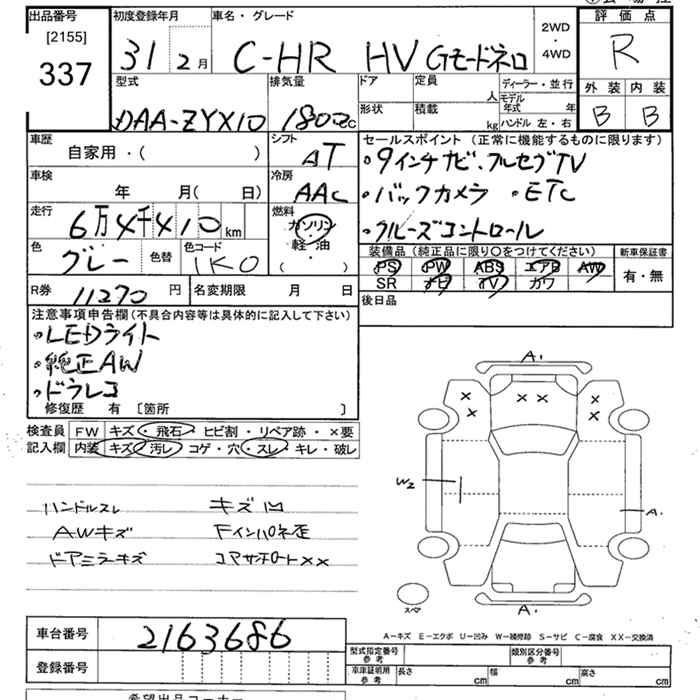 出品番号 初度登録年月 車名・グレード 評価点
[2155] 337
31 2月 C-HR HV Gモードネロ 2WD・4WD R
型式 排気量 ドア 定員 人 ディーラー・並行 外装 内装
DAA-ZYX10 1800cc 形状 積載 kg モデル年式 年 ハンドル 左・右 B B
車歴 自家用・( ) シフト AT
セールスポイント (正常に機能するものに限ります)
・9インチナビ.フルセグTV
車検 年 月( 日) 冷房 AAC
・バックカメラ ・ETC
走行 6万4千410km 燃料 ガソリン・軽油 ( ・ )
・クルーズコントロール
色 グレー 色替 色コード 1K0
装備品 (純正品に限り○をつけてください) 新車保証書
PS PW ABS エアB AW 有・無
SR ナビ TV カワ
R券 11270円 名変期限 月 日
後日品
注意事項申告欄(不具合内容等は具体的に記入して下さい)
・LEDライト
・純正AW
・ドラレコ
修復歴 有 〔箇所 〕
検査員記入欄 FW キズ・飛石・ヒビ割・リペア跡・×要
内装 キズ・汚レ・コゲ・穴・スレ・キレ・破レ
ハンドルスレ キズ凹
AWキズ Fインパネ歪
ドアミラーキズ コアサポートxx
A.
x x x x x x
W2 A.
スペア A.
A-キズ E-エクボ U-凹み W-補修跡 S-サビ C-腐食 XX-交換済
車台番号 2163686
型式指定番号 参考 類別区分番号 参考
登録番号
車庫証明用 参考 長さ cm 幅 cm 高さ cm
希望出品コーナー